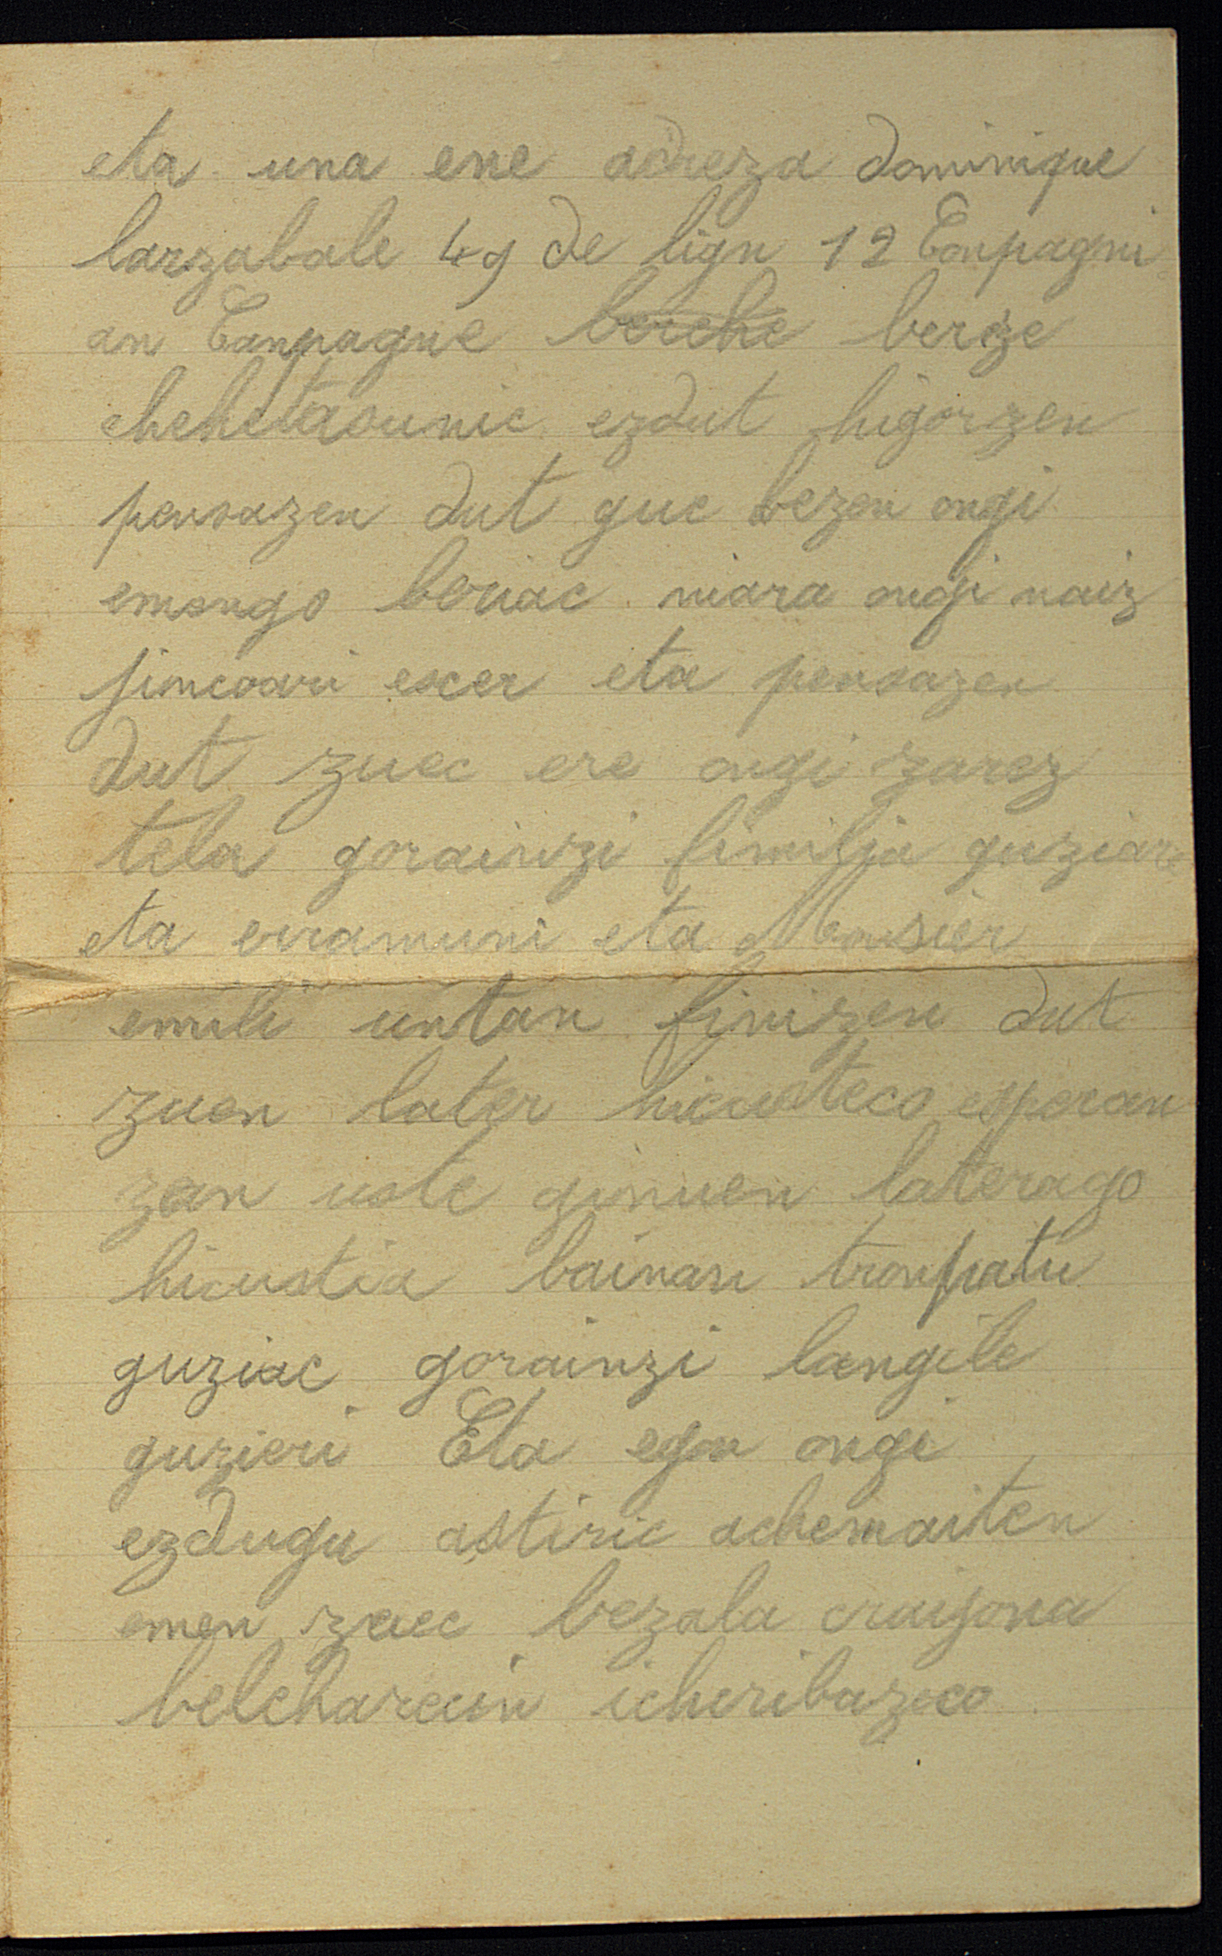 eta una ene adreza dominique
larzabale 49 de lign 12 Conpagni
an Canpagne berche berze
chehetasunic ezdut higorzen
pensazen dut guc bezen ongi
emongo beriac niara ongi naiz
jincoari escer eta pensazen
dut zuec ere ongi zarez
tela gorainzi fimilja guziari
eta erramuni eta Monsier
emili untan finizen dut
zuen later hicusteco esperan
zan uste ginuen laterago
hicustia bainan tronpatu
guziac gorainzi langile
guzieri Eta egon ongi
ezdugu astiric achemaiten
emen zuec bezala craijona
belcharecin icheribazeco